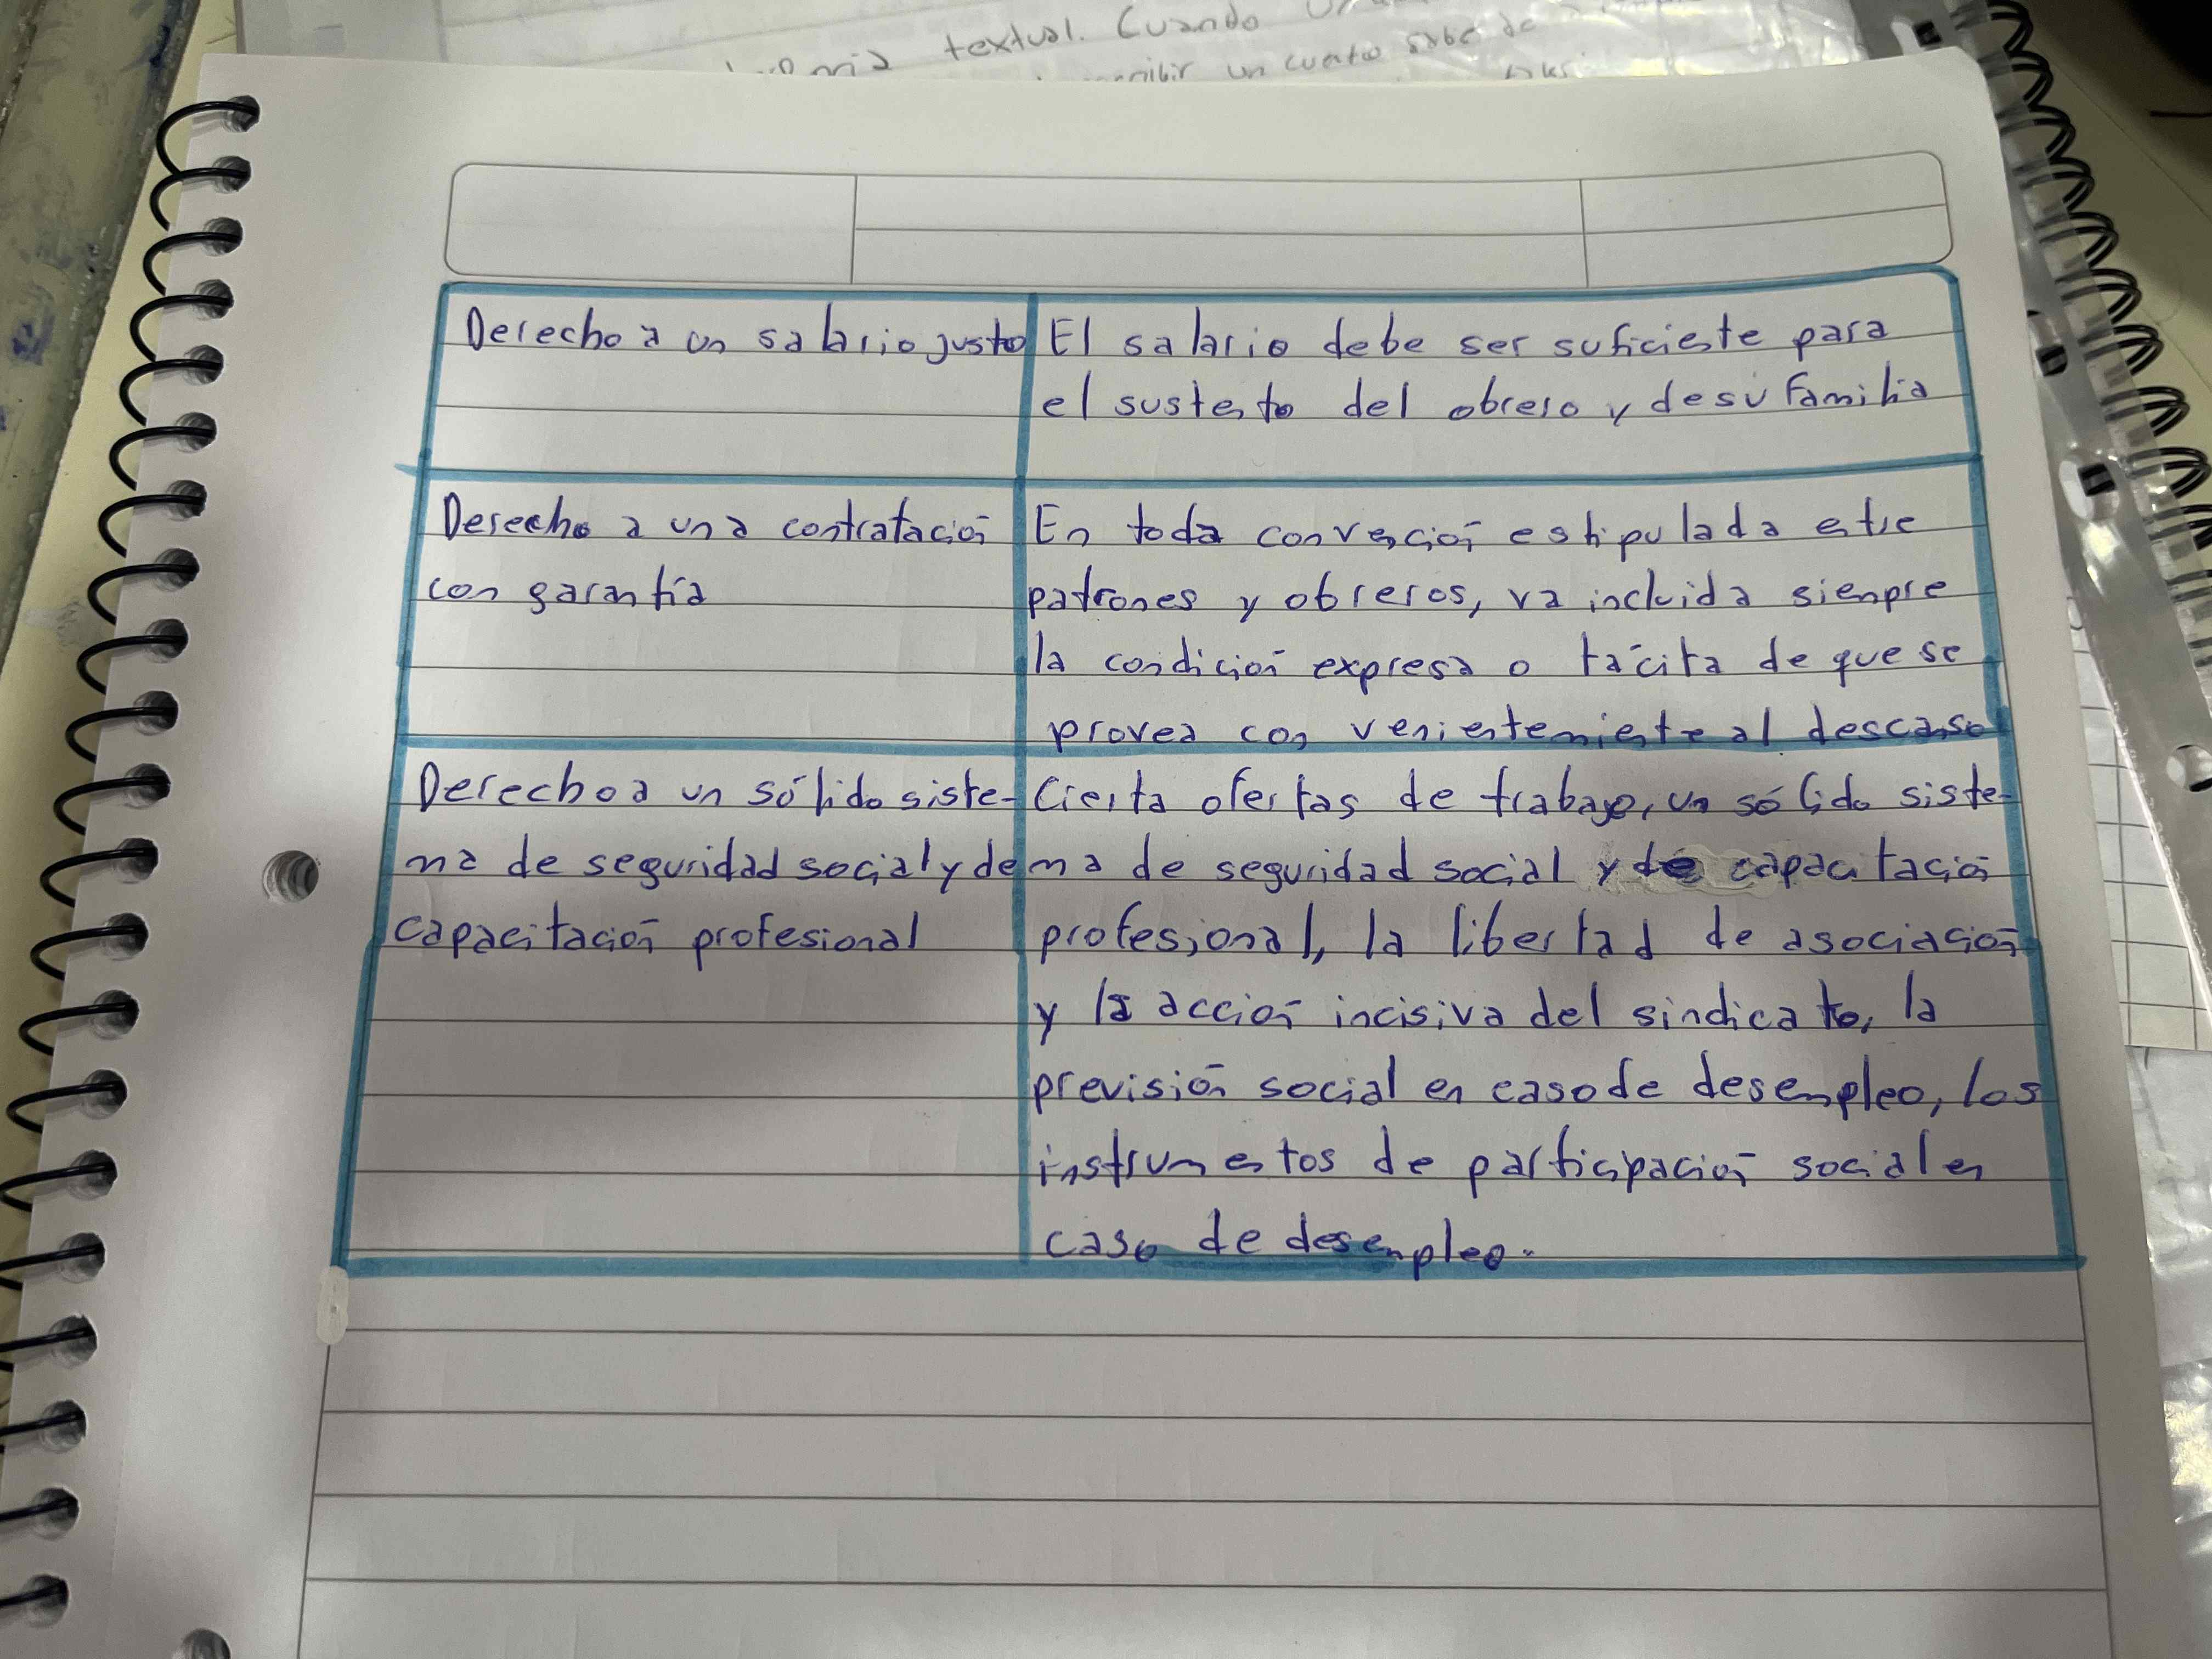 textual. Cuando
un cuento sabe de
Derecho a un salario justo
El salario debe ser suficiente para
el sustento del obrero y de su familia
Derecho a una contratación
con garantía
En toda convención estipulada entre
patrones y obreros, va incluida sienpre
la condición expresa o tácita de que se
provea con venientemiente al descanso
Derecho a un sólido siste-
ma de seguridad social y de
capacitación profesional
Cierta ofertas de trabajo, un sólido siste-
ma de seguridad social y de capacitación
profesional, la libertad de asociación
y la acción incisiva del sindicato, la
previsión social en caso de desempleo, los
instrumentos de participación social en
caso de desenpleo.